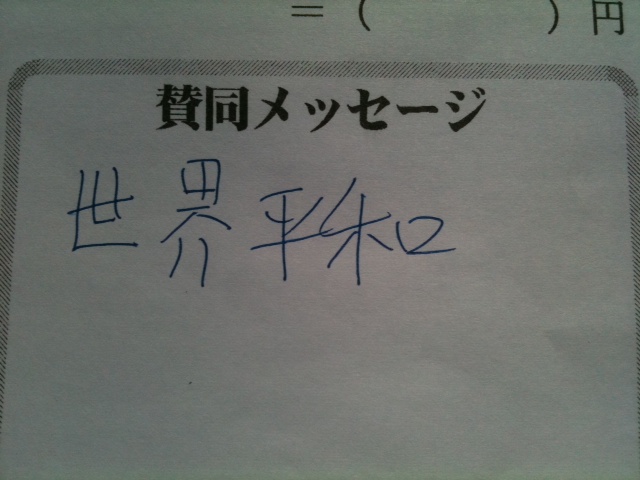 ＝（　　　　　）円
賛同メッセージ
世界平和